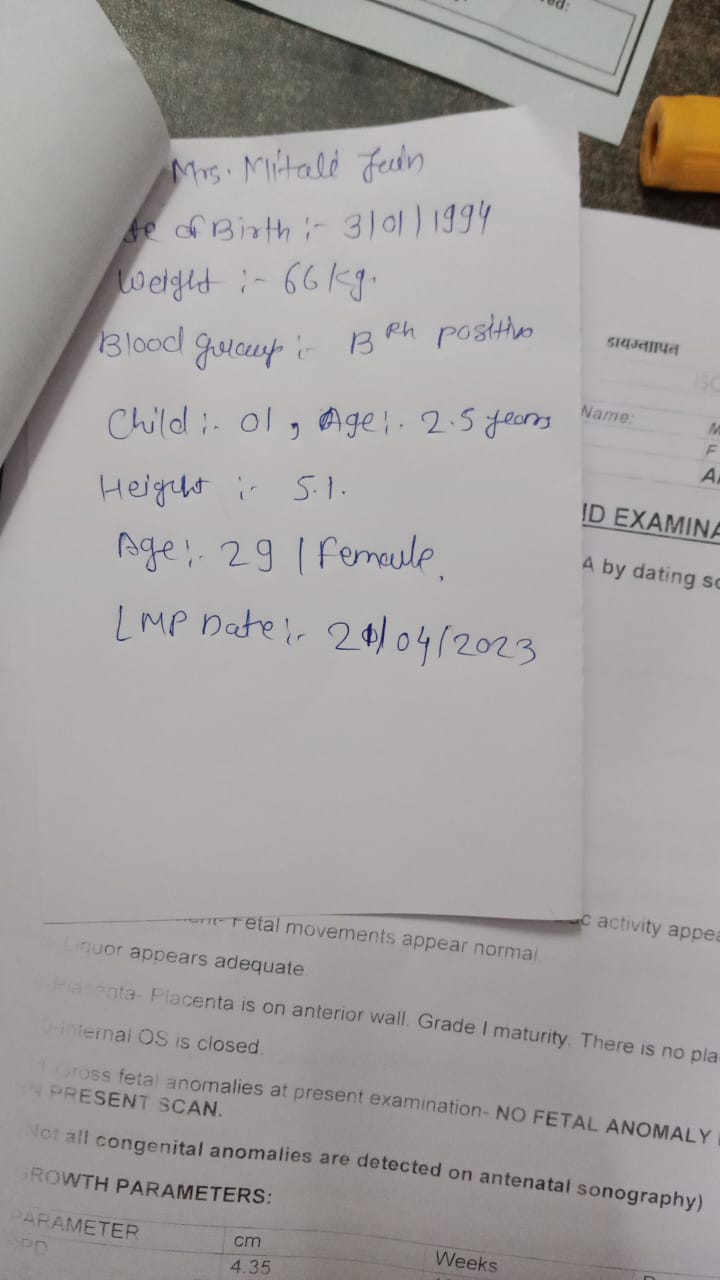 ed:
Mrs. Mitali Jain
te of Birth :- 3/01/1994
Weight :- 66 kg.
Blood group :- B Rh positive
Child :- 01, Age :- 2.5 years
Height :- 5.1.
Age :- 29 / Female.
LMP Date :- 20/04/2023
Name:
M
F
ID EXAMINA
A by dating sc
Fetal movements appear normal
ac activity appea
Liquor appears adequate
Placenta- Placenta is on anterior wall. Grade I maturity. There is no pla
Internal OS is closed.
Gross fetal anomalies at present examination- NO FETAL ANOMALY
IN PRESENT SCAN.
Not all congenital anomalies are detected on antenatal sonography)
GROWTH PARAMETERS:
PARAMETER cm Weeks
BPD 4.35